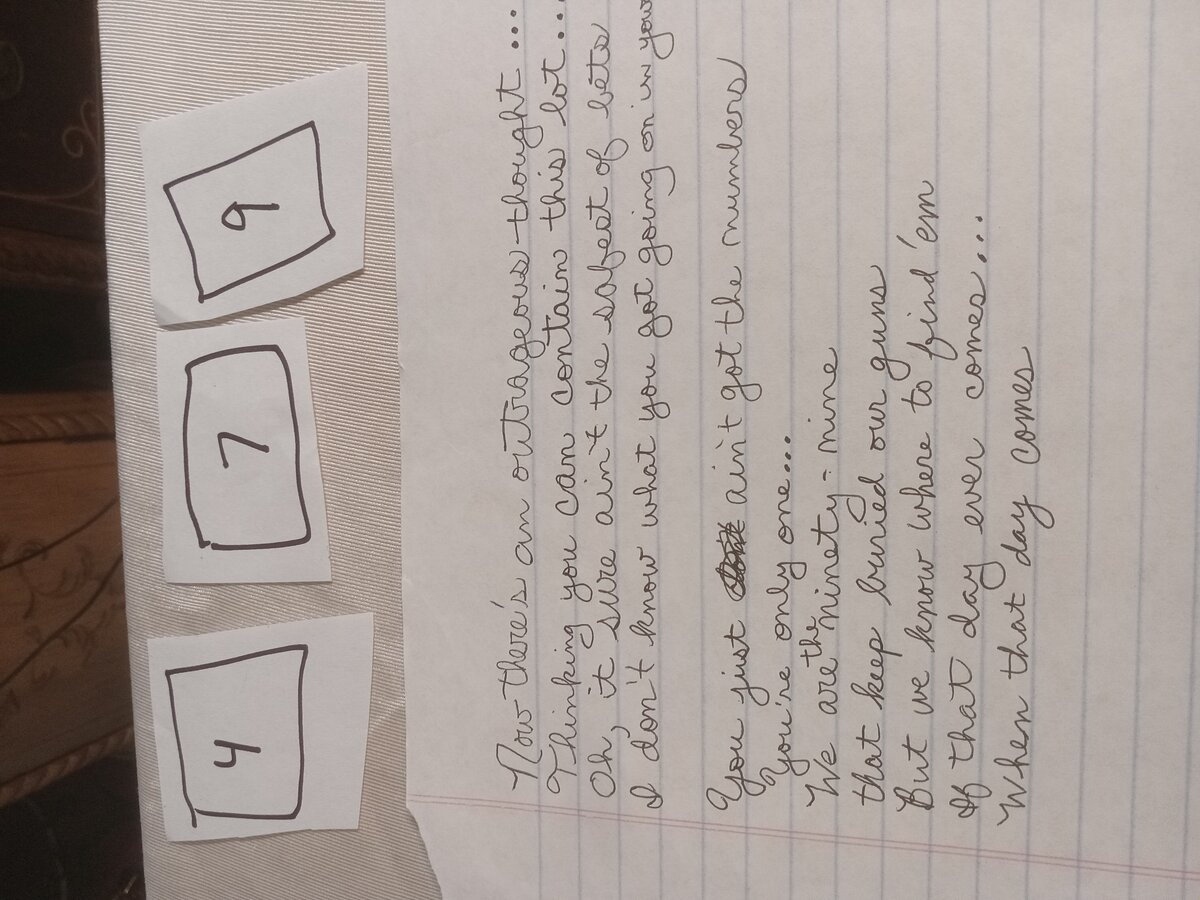 4 7 9
Now there's an outrageous thought...
Thinking you can contain this lot...
Oh, it sure ain't the safest of bets
I don't know what you got going on in your
You just ain't got the numbers
You're only one...
We are the ninety-nine
that keep buried our guns
But we know where to find 'em
If that day ever comes...
When that day comes